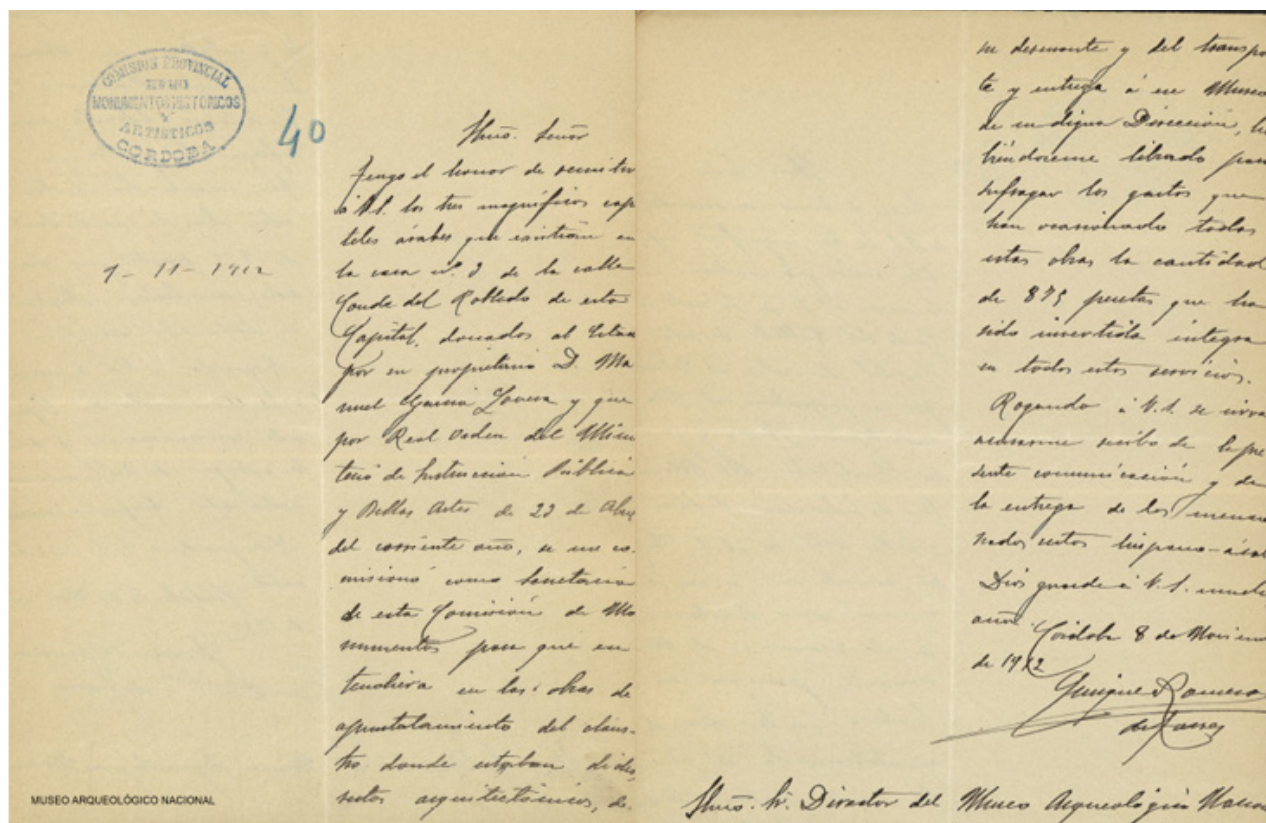 COMISIÓN PROVINCIAL
DE LOS
MONUMENTOS HISTÓRICOS
Y
ARTÍSTICOS
CÓRDOBA
40
9-11-1912
Ilmo. Señor
Tengo el honor de remitir
á V.I. los tres magníficos capi
teles árabes que existían en
la casa nº. 3 de la calle
Conde del Robledo de esta
Capital, donados al Estado
por su propietario D. Ma
nuel García Lovera y que
por Real Orden del Minis
terio de Instrucción Pública
y Bellas Artes de 23 de Abril
del corriente año, se me co-
misionó como Secretario
de esta Comisión de Mo
numentos para que en
tendiera en las obras de
apuntalamiento del claus-
tro donde estaban dichos
restos arquitectónicos, de
su desmonte y del transpor
te y entrega á ese Museo
de su digna Dirección, ha
biéndoseme librado para
sufragar los gastos que
han ocasionado todas
estas obras la cantidad
de 875 pesetas que ha
sido invertida integra
en todos estos servicios.
Rogando á V.I. se sirva
acusarme recibo de la pre
sente comunicación y de
la entrega de los mencio
nados restos hispano-árabes
Dios guarde á V.I. muchos
años.
Córdoba 8 de Noviembre
de 1912
Enrique Romero
de Torres
Ilmo. Sr. Director del Museo Arqueológico Nacional
MUSEO ARQUEOLÓGICO NACIONAL